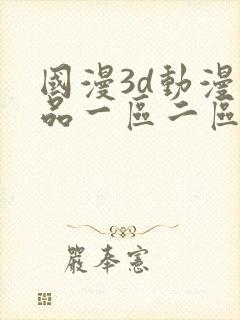 國漫3d動漫
品一區二區
嚴奉憲